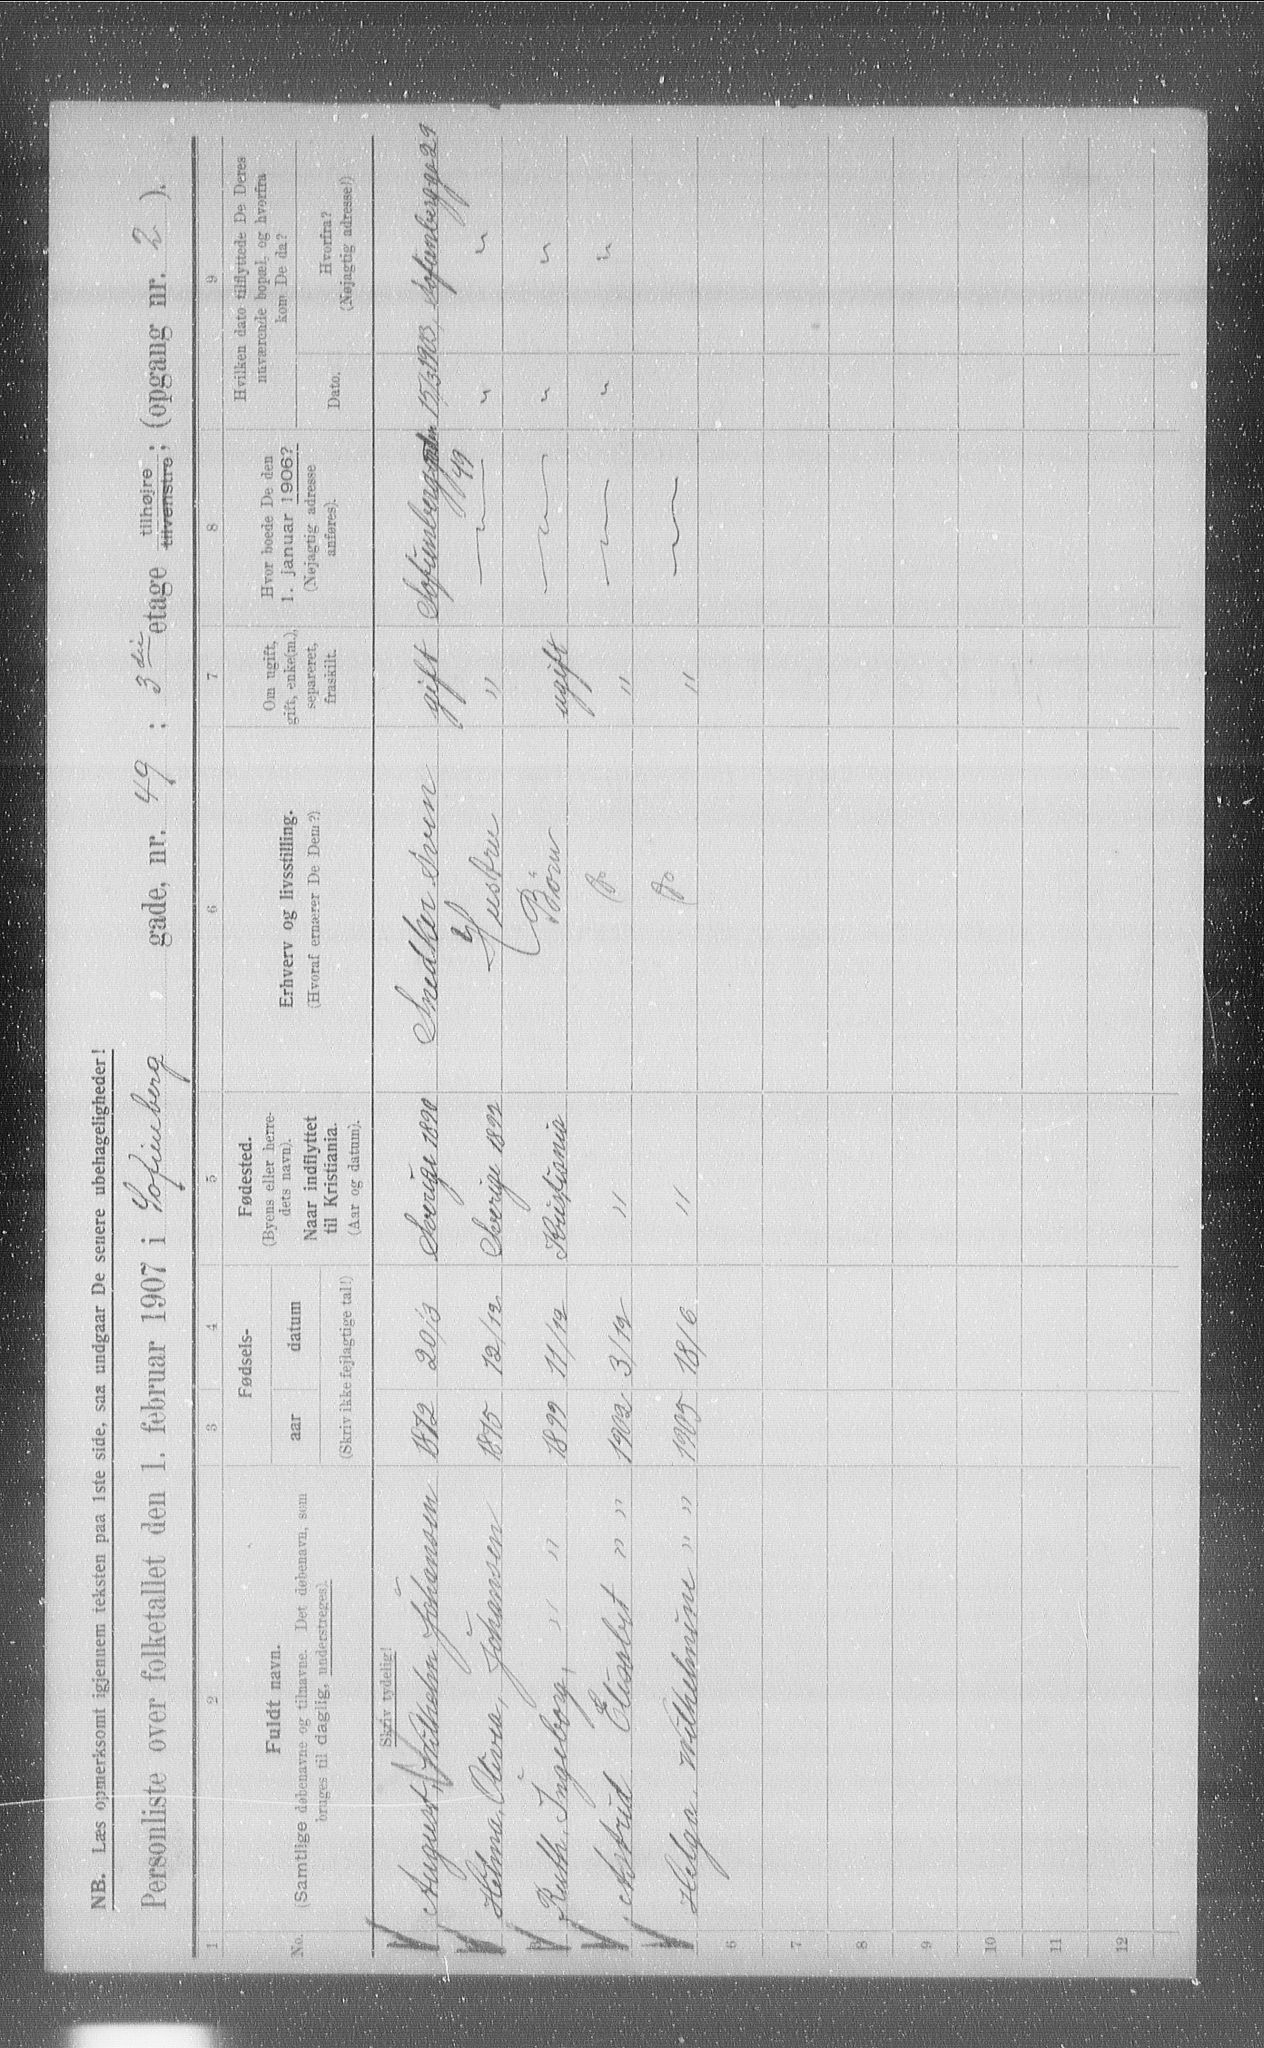 NB. Læs opmerksomt igjennem teksten paa 1ste side, saa undgaar De senere ubehageligheder!
Personliste over folketallet den 1. februar 1907 i Sofienberg gade, nr. 49 ; 3 die etage tilhøjre tilvenstre ; (opgang nr. 2 ).
1 2 3 4 5 6 7 8 9
No.
Fuldt navn.
(Samtlige døbenavne og tilnavne. Det døbenavn, som
bruges til daglig, understreges).
Fødsels-
aar datum
(Skriv ikke fejlagtige tal!)
Fødested.
(Byens eller herre-
dets navn).
Naar indflyttet
til Kristiania.
(Aar og datum).
Erhverv og livsstilling.
(Hvoraf ernærer De Dem?)
Om ugift,
gift, enke(m.),
separeret,
fraskilt.
Hvor boede De den
1. januar 1906?
(Nøjagtig adresse
anføres).
Hvilken dato tilflyttede De Deres
nuværende bopæl, og hvorfra
kom De da?
Dato.
Hvorfra?
(Nøjagtig adresse!)
Skriv tydelig!
August, Vilhelm Johansen 1872 20/3 Sverige 1890 Snedker Sven gift 15/3 1903, Sofienberggt 29
Hilma, Olivia, Johansen 1875 12/12 Sverige 1892 Hustru " 49 " "
Ruth, Ingeborg, " " 1899 11/12 Kristiania Börn ugift " "
Astrid Elisabet " " 1902 3/12 " Do " " "
Helga Wilhelmine " " 1905 18/6 " Do "
6
7
8
9
10
11
12